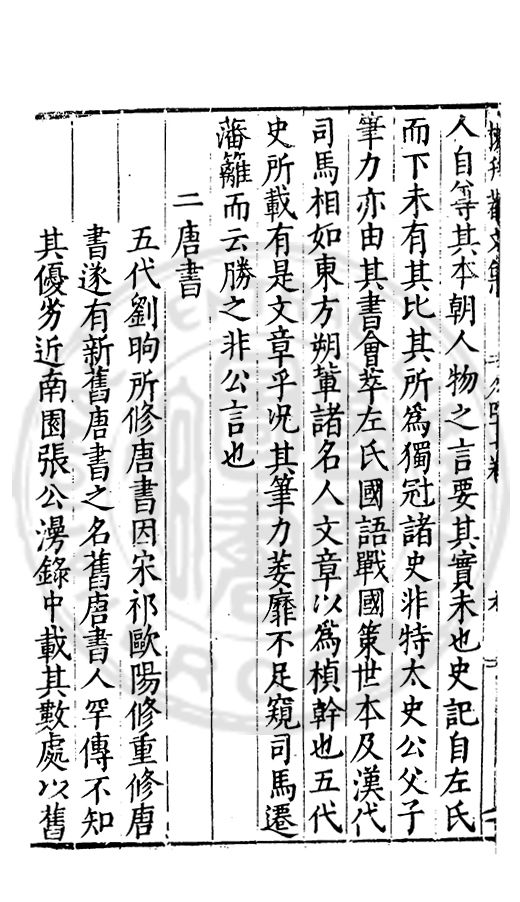 人自等其本朝人物之言要其實未也史記自左氏
而下未有其比其所爲獨冠諸史非特太史公父子
筆力亦由其書會萃左氏國語戰國策世本及漢代
司馬相如東方朔軰諸名人文章以爲楨幹也五代
史所載有是文章乎况其筆力萎靡不足窺司馬遷
藩籬而云勝之非公言也
二唐書
五代劉昫所修唐書因宋祁歐陽修重修唐
書遂有新舊唐書之名舊唐書人罕傳不知
其優劣近南園張公漫錄中載其數處以舊